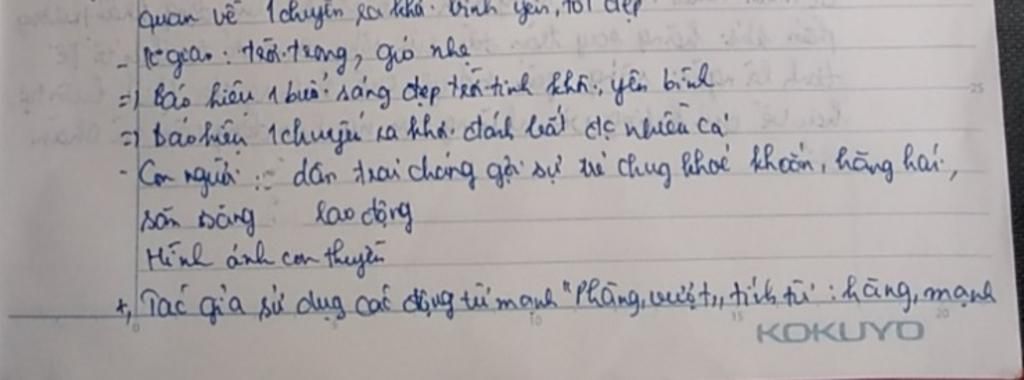 quan về 1 chuyến ra khơi bình yên, tốt đẹp
- K gian: trời trong, gió nhẹ
=> Báo hiệu 1 buổi sáng đẹp trời tinh khôi, yên bình
=> Báo hiệu 1 chuyến ra khơi đánh bắt đc nhiều cá
- Con người: dân trai tráng gợi sự trẻ trug khoẻ khoắn, hăng hái,
sẵn sàng lao động
Hình ảnh con thuyền
+, Tác giả sử dụg các động từ mạnh "Phăng, vượt", tính từ: hăng, mạnh
KOKUYO
0 5 10 15 20
25